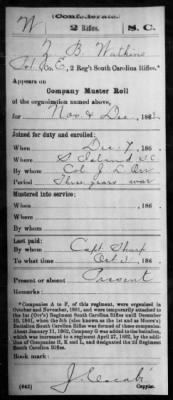 (Confederate.)
W 2 Rifles. S. C.
B Watkins
Co. E, 2 Reg't South Carolina Rifles.*
Appears on
Company Muster Roll
of the organization named above,
for Nov & Dec, 186
Joined for duty and enrolled:
When Dec 7, 186
Where S. Island S C
By whom Col J L Orr
Period Three years war
Mustered into service:
When , 186
Where
By whom
Last paid:
By whom Capt Sharp
To what time Oct 31, 186
Present or absent Present
Remarks:
*Companies A to F, of this regiment, were organized in
October and November, 1861, and were temporarily attached
to the 1st (Orr's) Regiment South Carolina Rifles until December
Battalion South Carolina Rifles was formed of these companies.
About January 11, 1862, Company G was added to the battalion,
which was increased to a regiment April 27, 1862, by the addition
of Companies H, K and L, and designated the 2d Regiment
South Carolina Rifles.
Book mark:
(642)
Copyist.